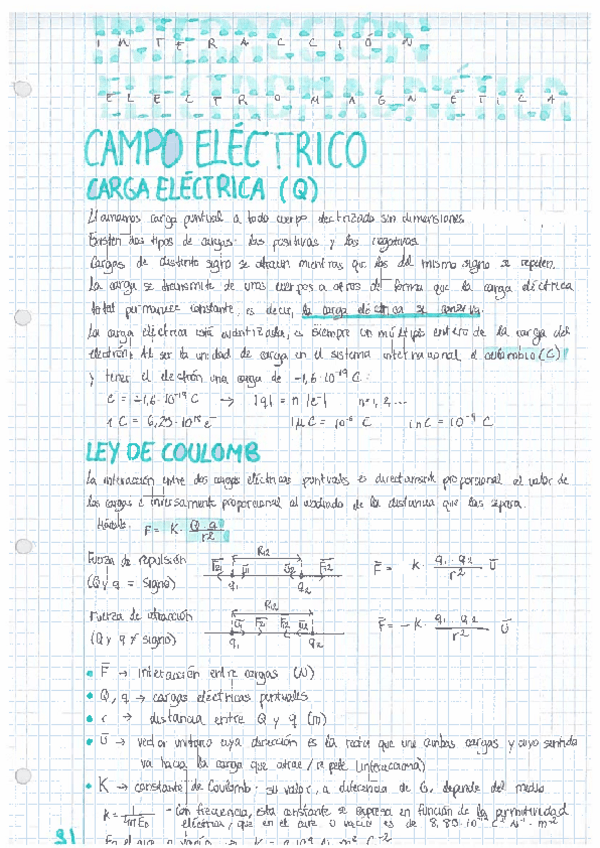 INTERACCIÓN
ELECTROMAGNÉTICA
CAMPO ELÉCTRICO
CARGA ELÉCTRICA (Q)
Llamamos carga puntual a todo cuerpo electrizado sin dimensiones
Existen dos tipos de cargas: las positivas y las negativas.
Cargas de distinto signo se atraen mientras que las del mismo signo se repelen.
La carga se transmite de unos cuerpos a otros de forma que la carga eléctrica
total permanece constante, es decir, la carga eléctrica se conserva.
La carga eléctrica está cuantizada, es siempre un múltiplo entero de la carga del
electrón. Al ser la unidad de carga en el sistema internacional el culombio (C)
y tener el electrón una carga de -1,6·10⁻¹⁹ C :
e = -1,6·10⁻¹⁹ C → |q| = n |e⁻| n=1, 2, ...
1 C = 6,25·10¹⁸ e⁻ 1μC = 10⁻⁶ C 1nC = 10⁻⁹ C
LEY DE COULOMB
La interacción entre dos cargas eléctricas puntuales es directamente proporcional al valor de
las cargas e inversamente proporcional al cuadrado de la distancia que las separa.
Módulo: F = K · Q · q / r²
Fuerza de repulsión
R₁₂
(Q y q = signo)
q₁ q₂
F̄ = K · q₁ · q₂ / r² ū
Fuerza de atracción
R₁₂
(Q y q ≠ signo)
q₁ q₂
F̄ = - K · q₁ · q₂ / r² ū
• F̄ → interacción entre cargas (N)
• Q, q → cargas eléctricas puntuales
• r → distancia entre Q y q (m)
• ū → vector unitario cuya dirección es la recta que une ambas cargas y cuyo sentido
va hacia la carga que atrae / repele (interacciona)
• K → constante de Coulomb. su valor, a diferencia de G, depende del medio
K = 1 / 4πε₀ - Con frecuencia, esta constante se expresa en función de la permitividad
eléctrica, que en el aire o vacío es de 8,85·10⁻¹² C² N⁻¹ · m⁻²